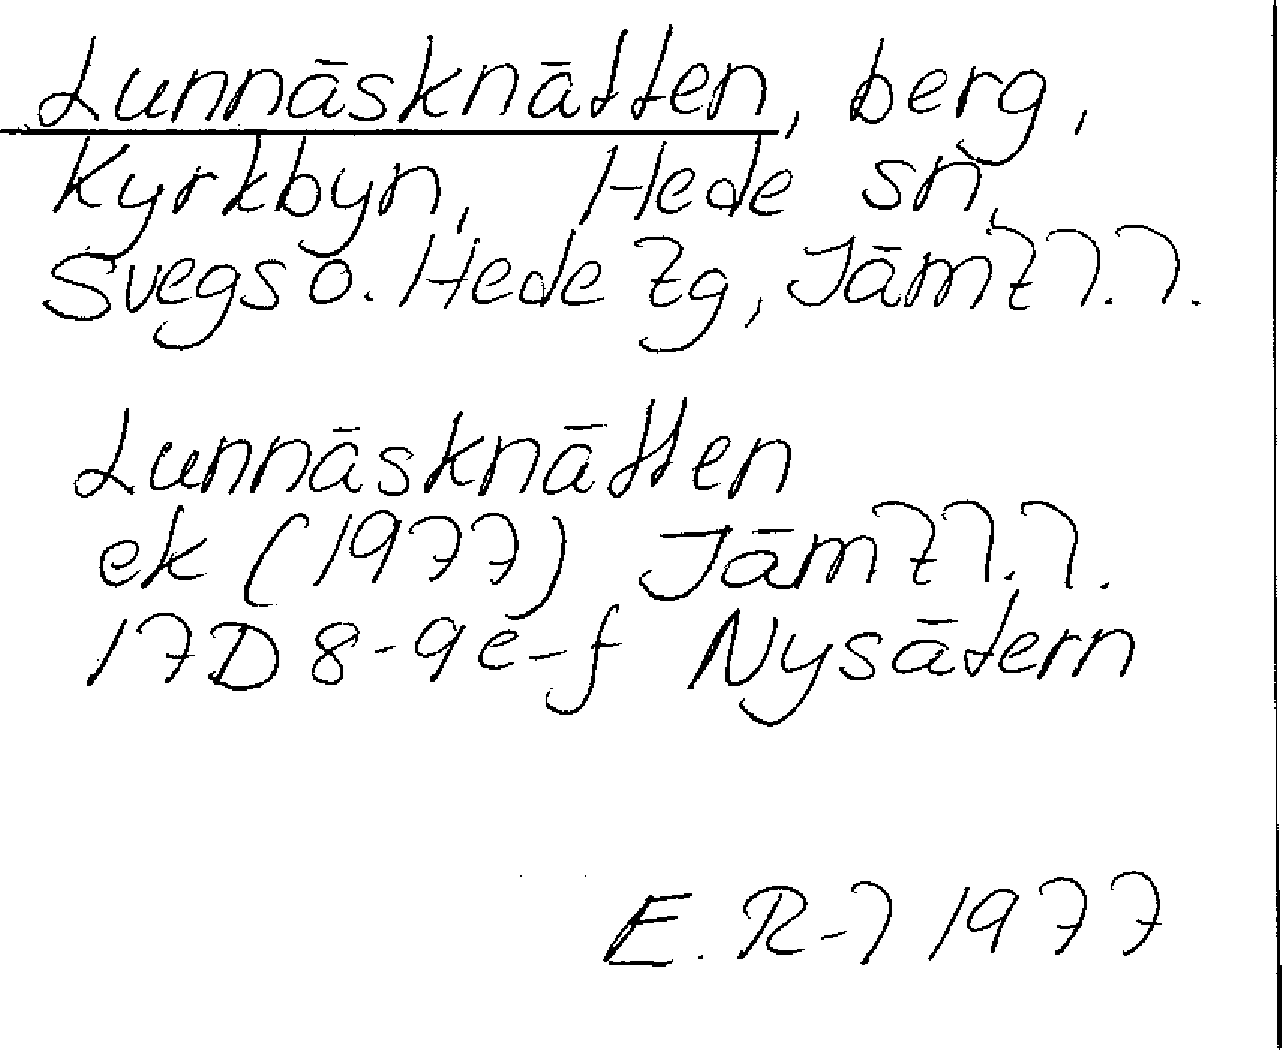 Lunnäsknätten, berg,
Kyrkbyn, Hede sn,
Svegs o. Hede tg, Jämtl.l.
Lunnäsknätten
ek (1977) Jämtl.l.
17D 8-9 e-f Nysätern
E. R-l 1977